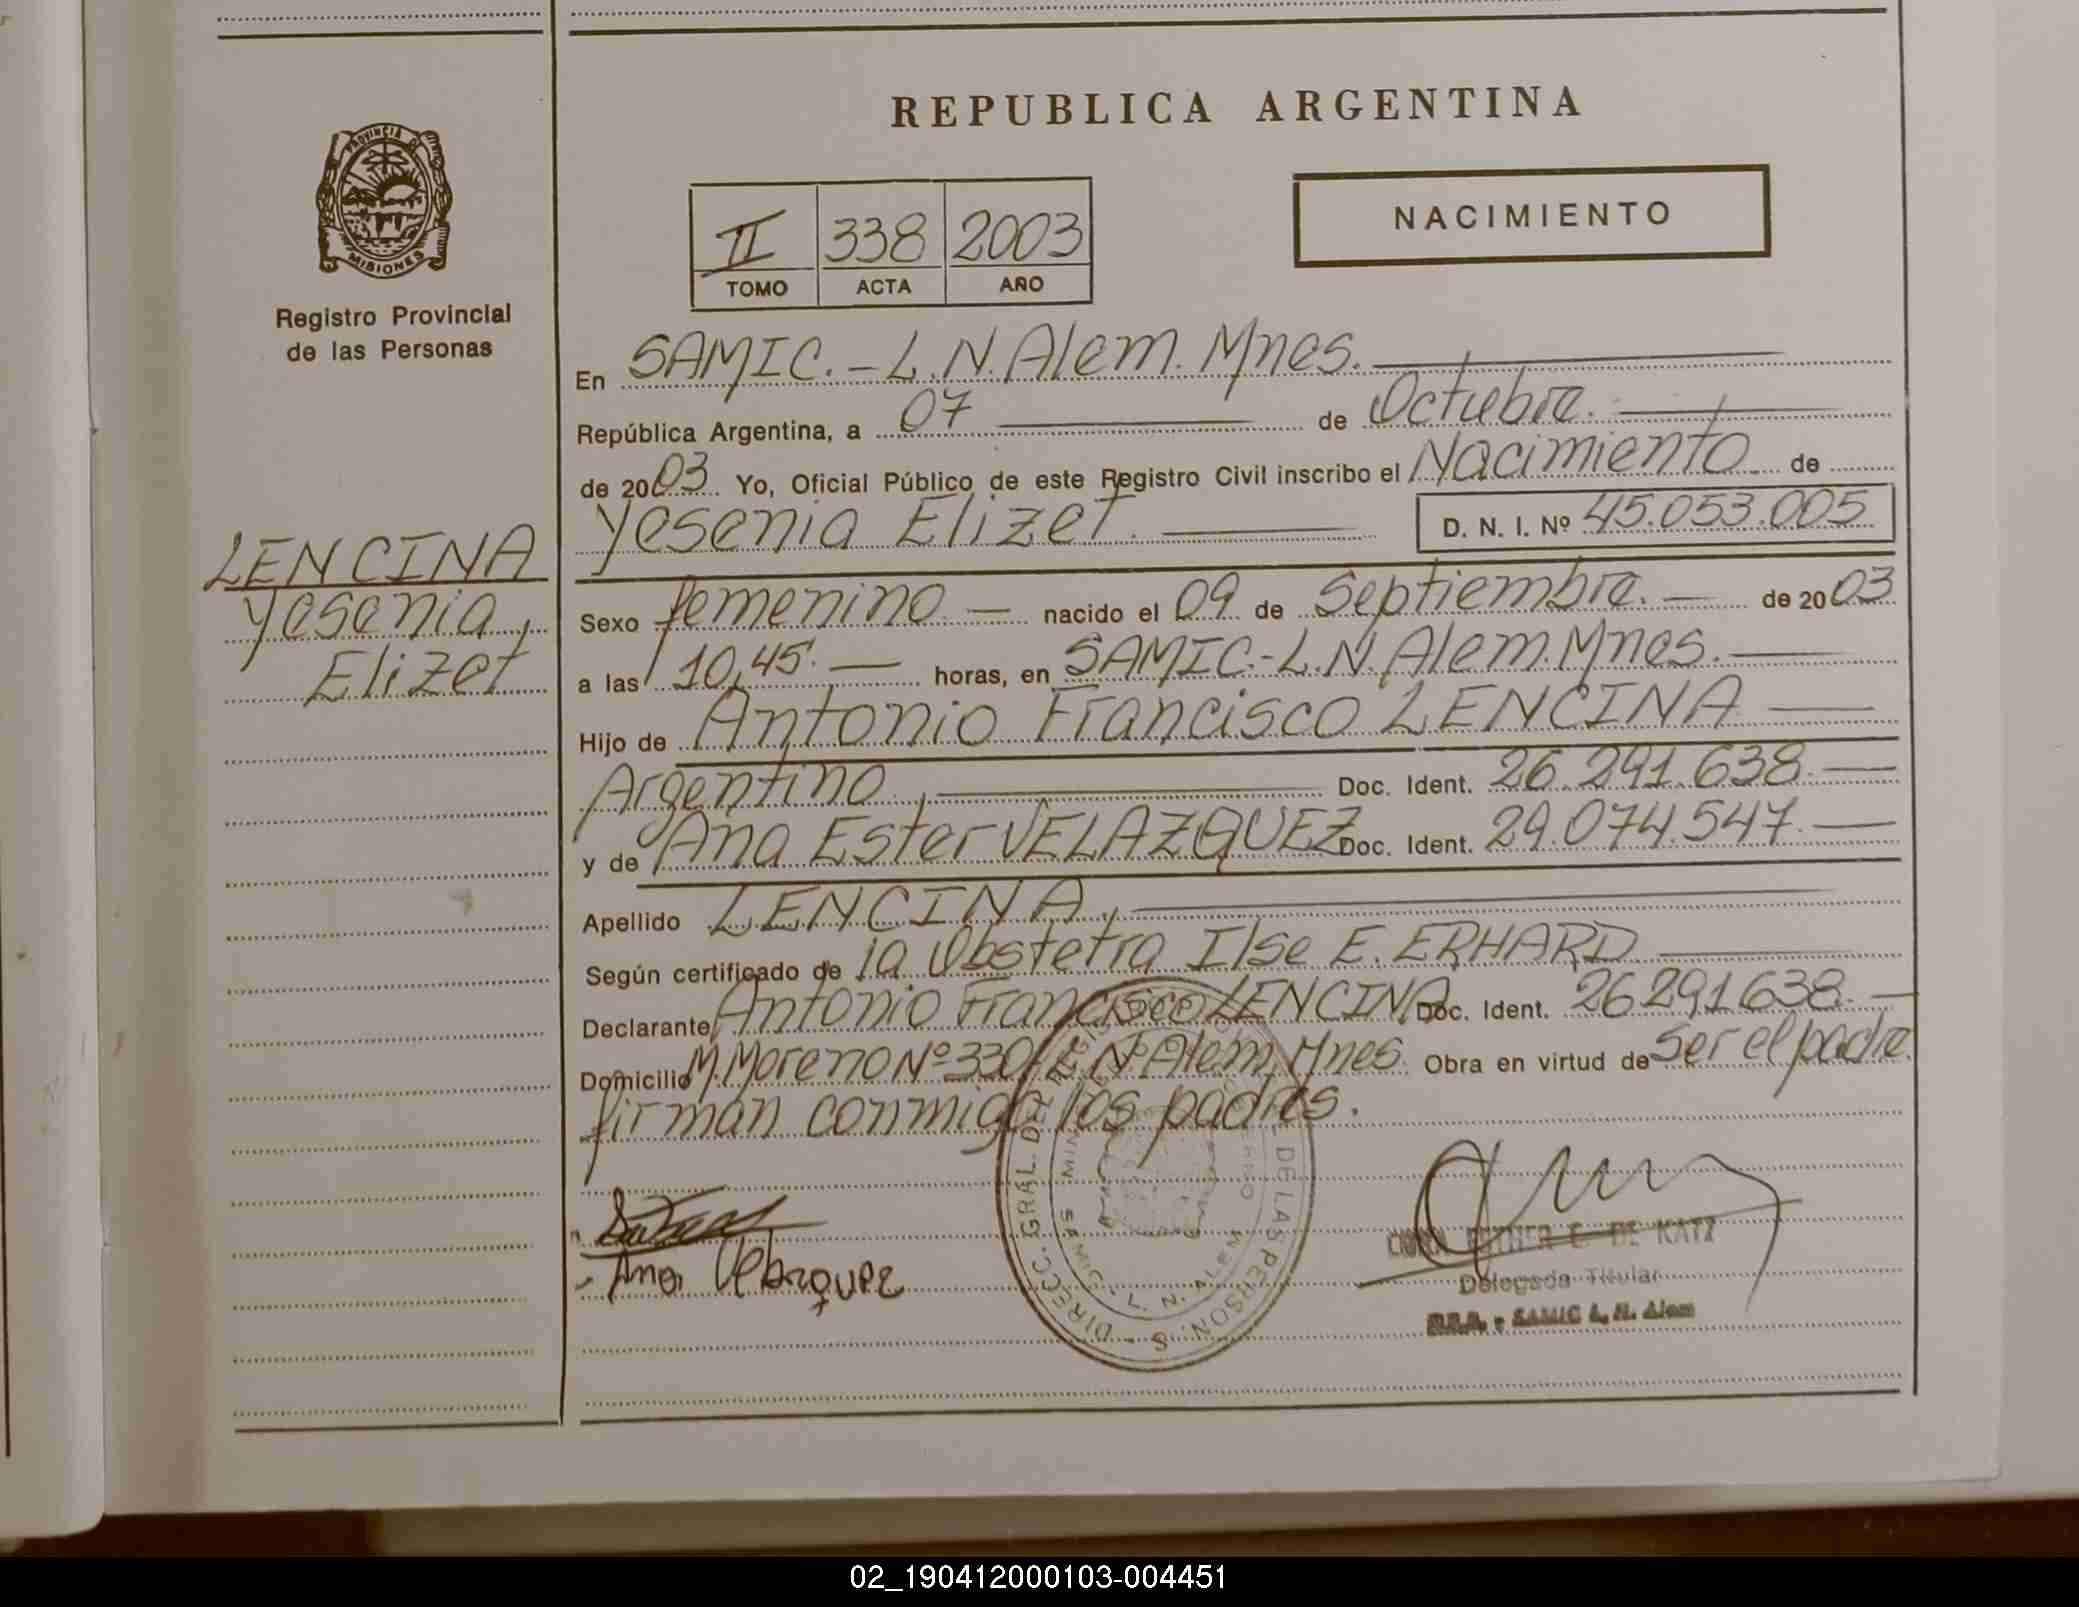 REPUBLICA ARGENTINA
PROVINCIA DE
MISIONES
Registro Provincial
de las Personas
II 338 2003
TOMO ACTA AÑO
NACIMIENTO
LENCINA
Yesenia,
Elizet
En SAMIC.-L.N.Alem.Mnes.
República Argentina, a 07 de Octubre.
de 2003 Yo, Oficial Público de este Registro Civil inscribo el Nacimiento de
Yesenia Elizet. D. N. I. Nº 45.053.005
Sexo femenino nacido el 09 de Septiembre. de 2003
a las 10,45. horas, en SAMIC.-L.N.Alem.Mnes.
Hijo de Antonio Francisco LENCINA
Argentino, Doc. Ident. 26.291.638.
y de Ana Ester VELAZQUEZ Doc. Ident. 29.074.547.
Apellido LENCINA,
Según certificado de la Obstetra Ilse E. ERHARD
Declarante Antonio Francisco LENCINA Doc. Ident. 26291638.
Domicilio M.Moreno Nº330-L.N.Alem,Mnes. Obra en virtud de Ser el padre.
firman conmigo los padres.
Ana Velazquez
DIRECC. GRAL. DE DE LAS PERSONAS
SAMIC. L. N. ALEM
DE KATZ
Delegada Titular
SAMIC L. N. Alem
02_190412000103-004451